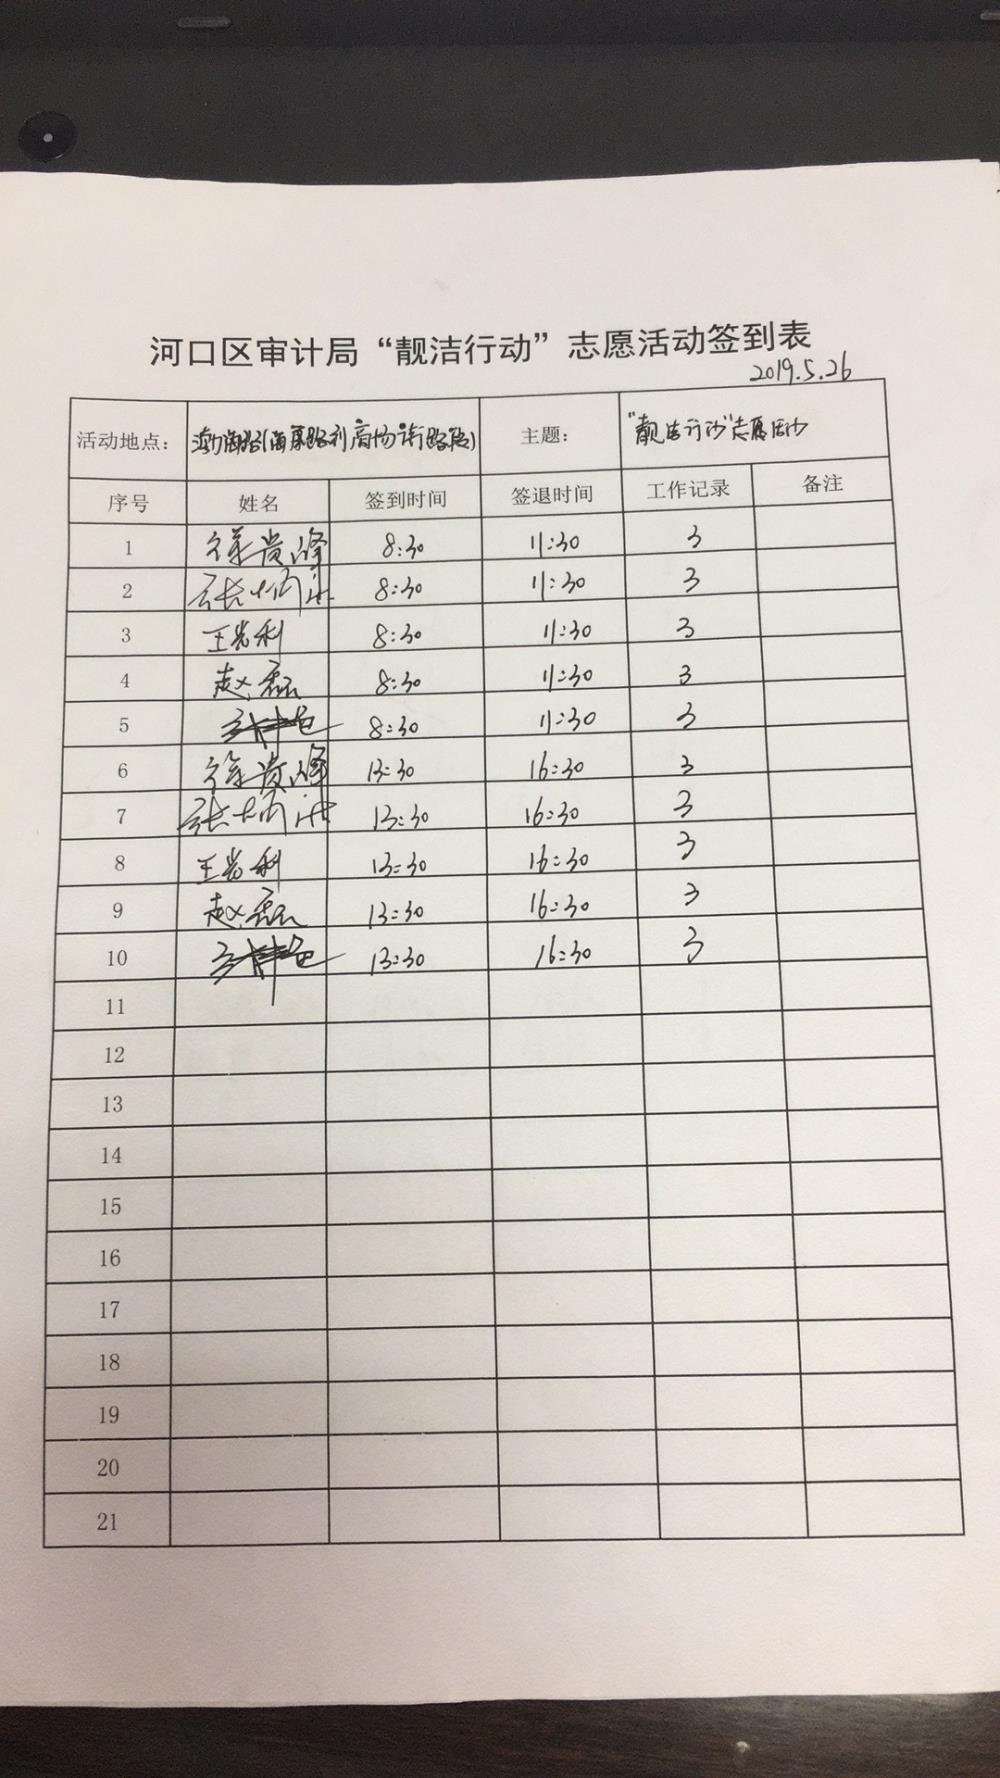 河口区审计局“靓洁行动”志愿活动签到表
2019.5.26
活动地点： 渤海路(海康路利商场街路段) 主题： “靓洁行动”志愿活动
序号 姓名 签到时间 签退时间 工作记录 备注
1 徐贵峰 8:30 11:30 3
2 张 8:30 11:30 3
3 王光利 8:30 11:30 3
4 赵磊 8:30 11:30 3
5 8:30 11:30 3
6 徐贵峰 13:30 16:30 3
7 张 13:30 16:30 3
8 王光利 13:30 16:30 3
9 赵磊 13:30 16:30 3
10 13:30 16:30 3
11
12
13
14
15
16
17
18
19
20
21